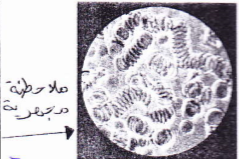 ملاحظة
مجهرية